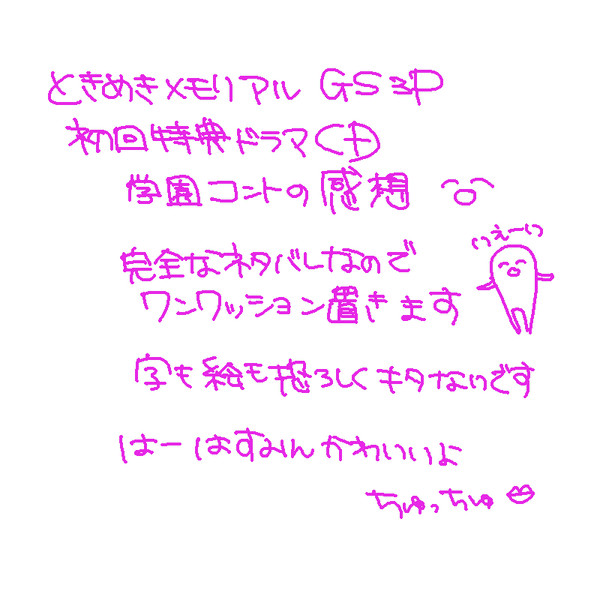 ときめきメモリアル GS3P
初回特典ドラマCD
学園コントの感想
いえーい
完全なネタバレなので
ワンワッション置きます
字も絵も恐ろしくキタないです
はーはすみんかわいいよ
ちゅっちゅ